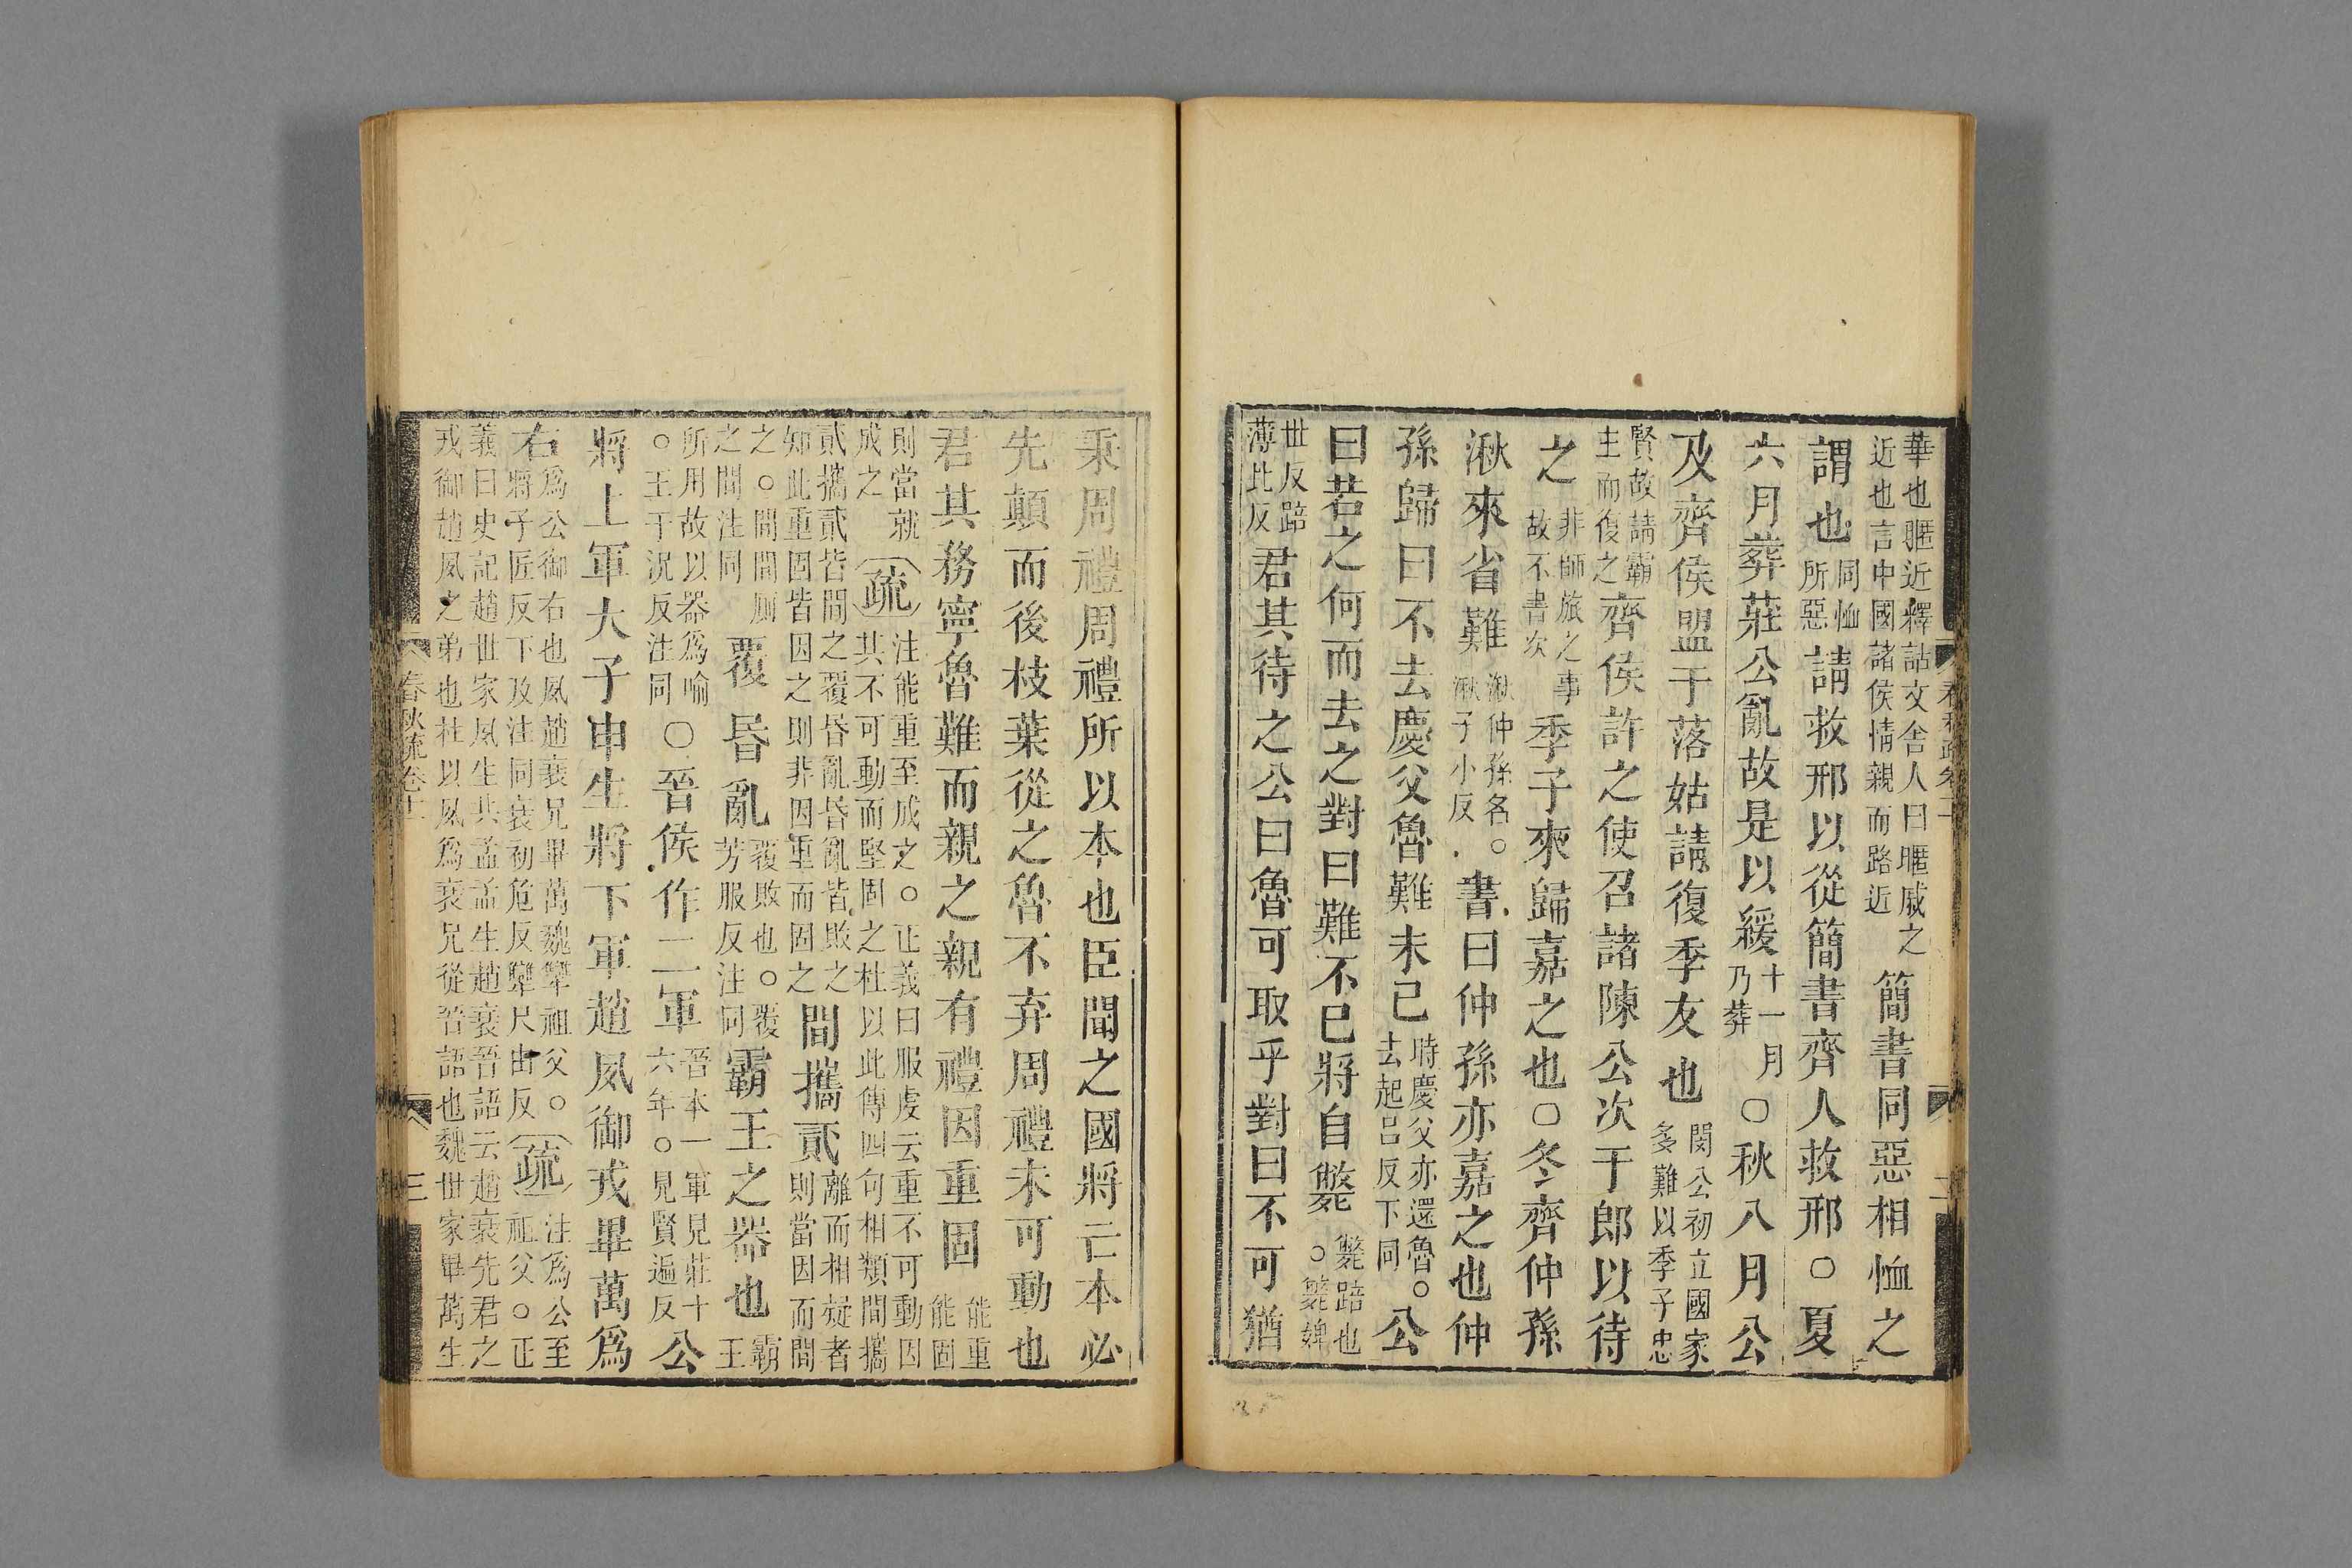 華也暱近釋詁文舍人曰暱戚之
近也言中國諸侯情親而路近
簡書同惡相恤之
謂也
同恤
所惡
請救邢以從簡書齊人救邢○夏
六月葬莊公亂故是以緩
十一月
乃葬
○秋八月公
及齊侯盟于落姑請復季友也
閔公初立國家
多難以季子忠
賢故請霸
主而復之
齊侯許之使召諸陳公次于郎以待
之
非師旅之事
故不書次
季子來歸嘉之也○冬齊仲孫
湫來省難
湫仲孫名○
湫子小反
書曰仲孫亦嘉之也仲
孫歸曰不去慶父魯難未已
時慶父亦還魯○
去起呂反下同
公
曰若之何而去之對曰難不已將自斃
斃踣也
○斃婢
世反踣
薄北反
君其待之公曰魯可取乎對曰不可猶
秉周禮周禮所以本也臣聞之國將亡本必
先顛而後枝葉從之魯不弃周禮未可動也
君其務寧魯難而親之親有禮因重固
能重
能固
則當就
成之
疏
注能重至成之○正義曰服虔云重不可動因
其不可動而堅固之杜以此傳四句相類間攜
貳攜貳皆間之覆昏亂昏亂皆敗之
知此重固皆因之則非因重而固之
間攜貳
離而相疑者
則當因而間
之○間間厠
之間注同
覆昏亂
覆敗也○覆
芳服反注同
霸王之器也
霸
王
所用故以器爲喻
○王于況反注同
○晉侯作二軍
晉本一軍見莊十
六年○見賢遍反
公
將上軍大子申生將下軍趙夙御戎畢萬爲
右
爲公御右也夙趙衰兄畢萬魏犨祖父○
將子匠反下及注同衰初危反犨尺由反
疏
注爲公至
祖父○正
義曰史記趙世家夙生共孟孟生趙衰晉語云趙衰先君之
戎御趙夙之弟也杜以夙爲衰兄從晉語也魏世家畢萬生
春秋疏卷十一
三